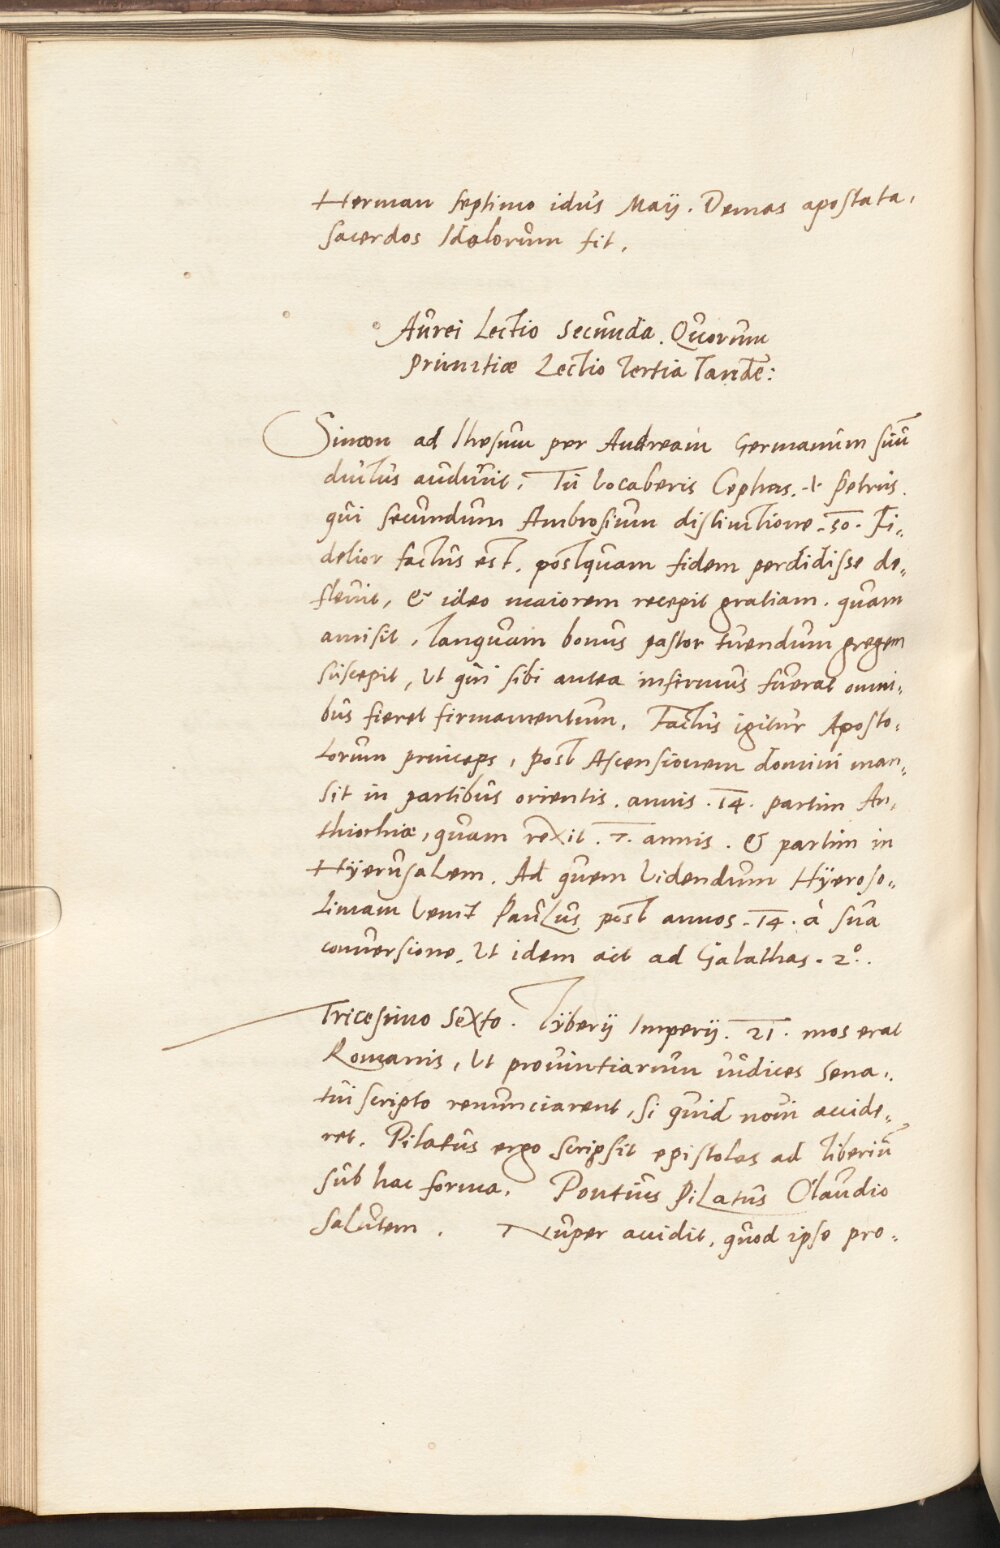 Herman septimo idus Maij. Demas apostata,
sacerdos Idolorum fit.
Aurei Lectio secunda. Quorum
primitiæ Lectio tertia Tandē:
Simon ad Ihesum per Andream Germanum suū
ductus audivit, Tu vocaberis Cephas. Petrus.
qui secundum Ambrosium distinctione. 50. Fi,,
delior factus est, postquam fidem perdidisse de,,
flevit, & ideo maiorem recepit gratiam. quam
amisit, Tanquam bonus pastor tuendum gregem
suscepit, ut qui sibi antea infirmus fuerat omni,,
bus fieret firmamentum. Factus igitur Aposto,,
lorum princeps, post Ascensionem domini man,,
sit in partibus orientis. annis. 14. partim An,,
thiochiæ, quam rexit. 7. annis. & partim in
Hÿerusalem. Ad quem videndum Hÿeroso,,
limam venit Paulus post annos. 14. à sua
conversione, Ut idem ait ad Galathas. 2°.
Tricesimo Sexto. Tÿberij Imperij. 21. mos erat
Romanis, Ut provintiarum iudices Sena,,
tui scripto renunciarent, si quid novi accide,,
ret. Pilatus ergo scripsit epistolas ad Tiberiū
sub hac forma. Pontius Pilatus Claudio
salutem. Nuper accidit, quod ipse pro,,